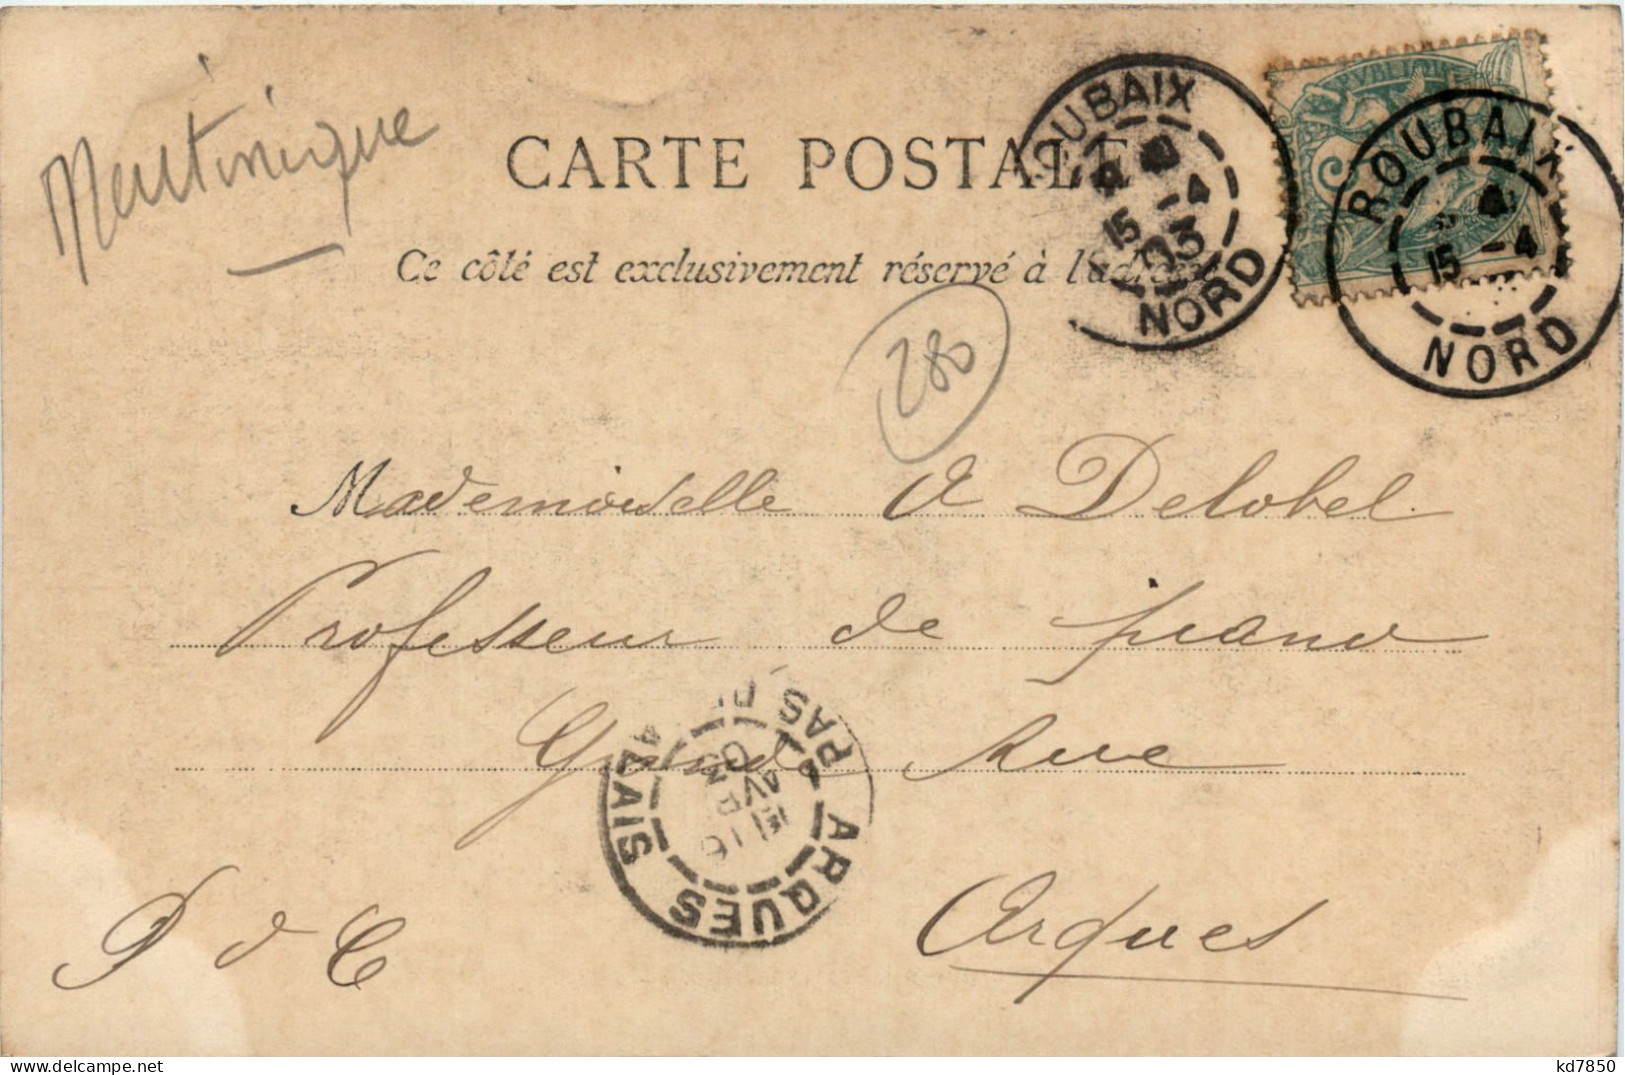 Martinique
CARTE POSTALE
Ce côté est exclusivement réservé à l'adresse
ROUBAIX
15 -4
03
NORD
ROUBAIX
15 -4
NORD
280
Mademoiselle A Delobel
Professeur de piano
Grand Rue
Arques
P d C
ARQUES
PAS D
ALAIS
16
AVR
03
kd7850